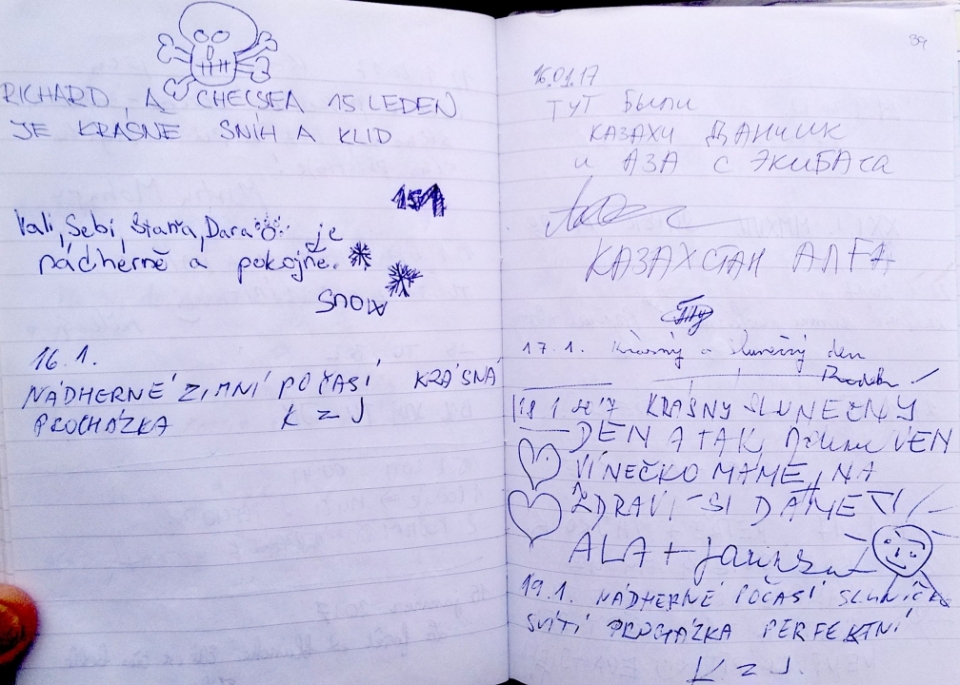 RICHARD, A CHELSEA 15 LEDEN
JE KRÁSNE SNÍH A KLID
151
Vali, Sebi, Staňa, Dara je
nádherně a pokojně.
SNOW
16.1.
NÁDHERNÉ ZIMNÍ POČASÍ KRÁSNÁ
PROCHÁZKA K z J
39
16.01.17
ТУТ БЫЛИ
КАЗАХИ ДАНЧИК
И АЗА С ЭКИБАСА
КАЗАХСТАН АЛГА
17.1. Krásný a slunečný den
18 1 2017 KRÁSNY SLUNEČNY
DEN A TAK VEN
VÍNEČKO MÁME, NA
ZDRAVÍ SI DÁME
ALA +
19.1. NÁDHERNÉ POČASÍ SLUNÍČKO
SVÍTÍ PROCHÁZKA PERFEKTNÍ
K z J.